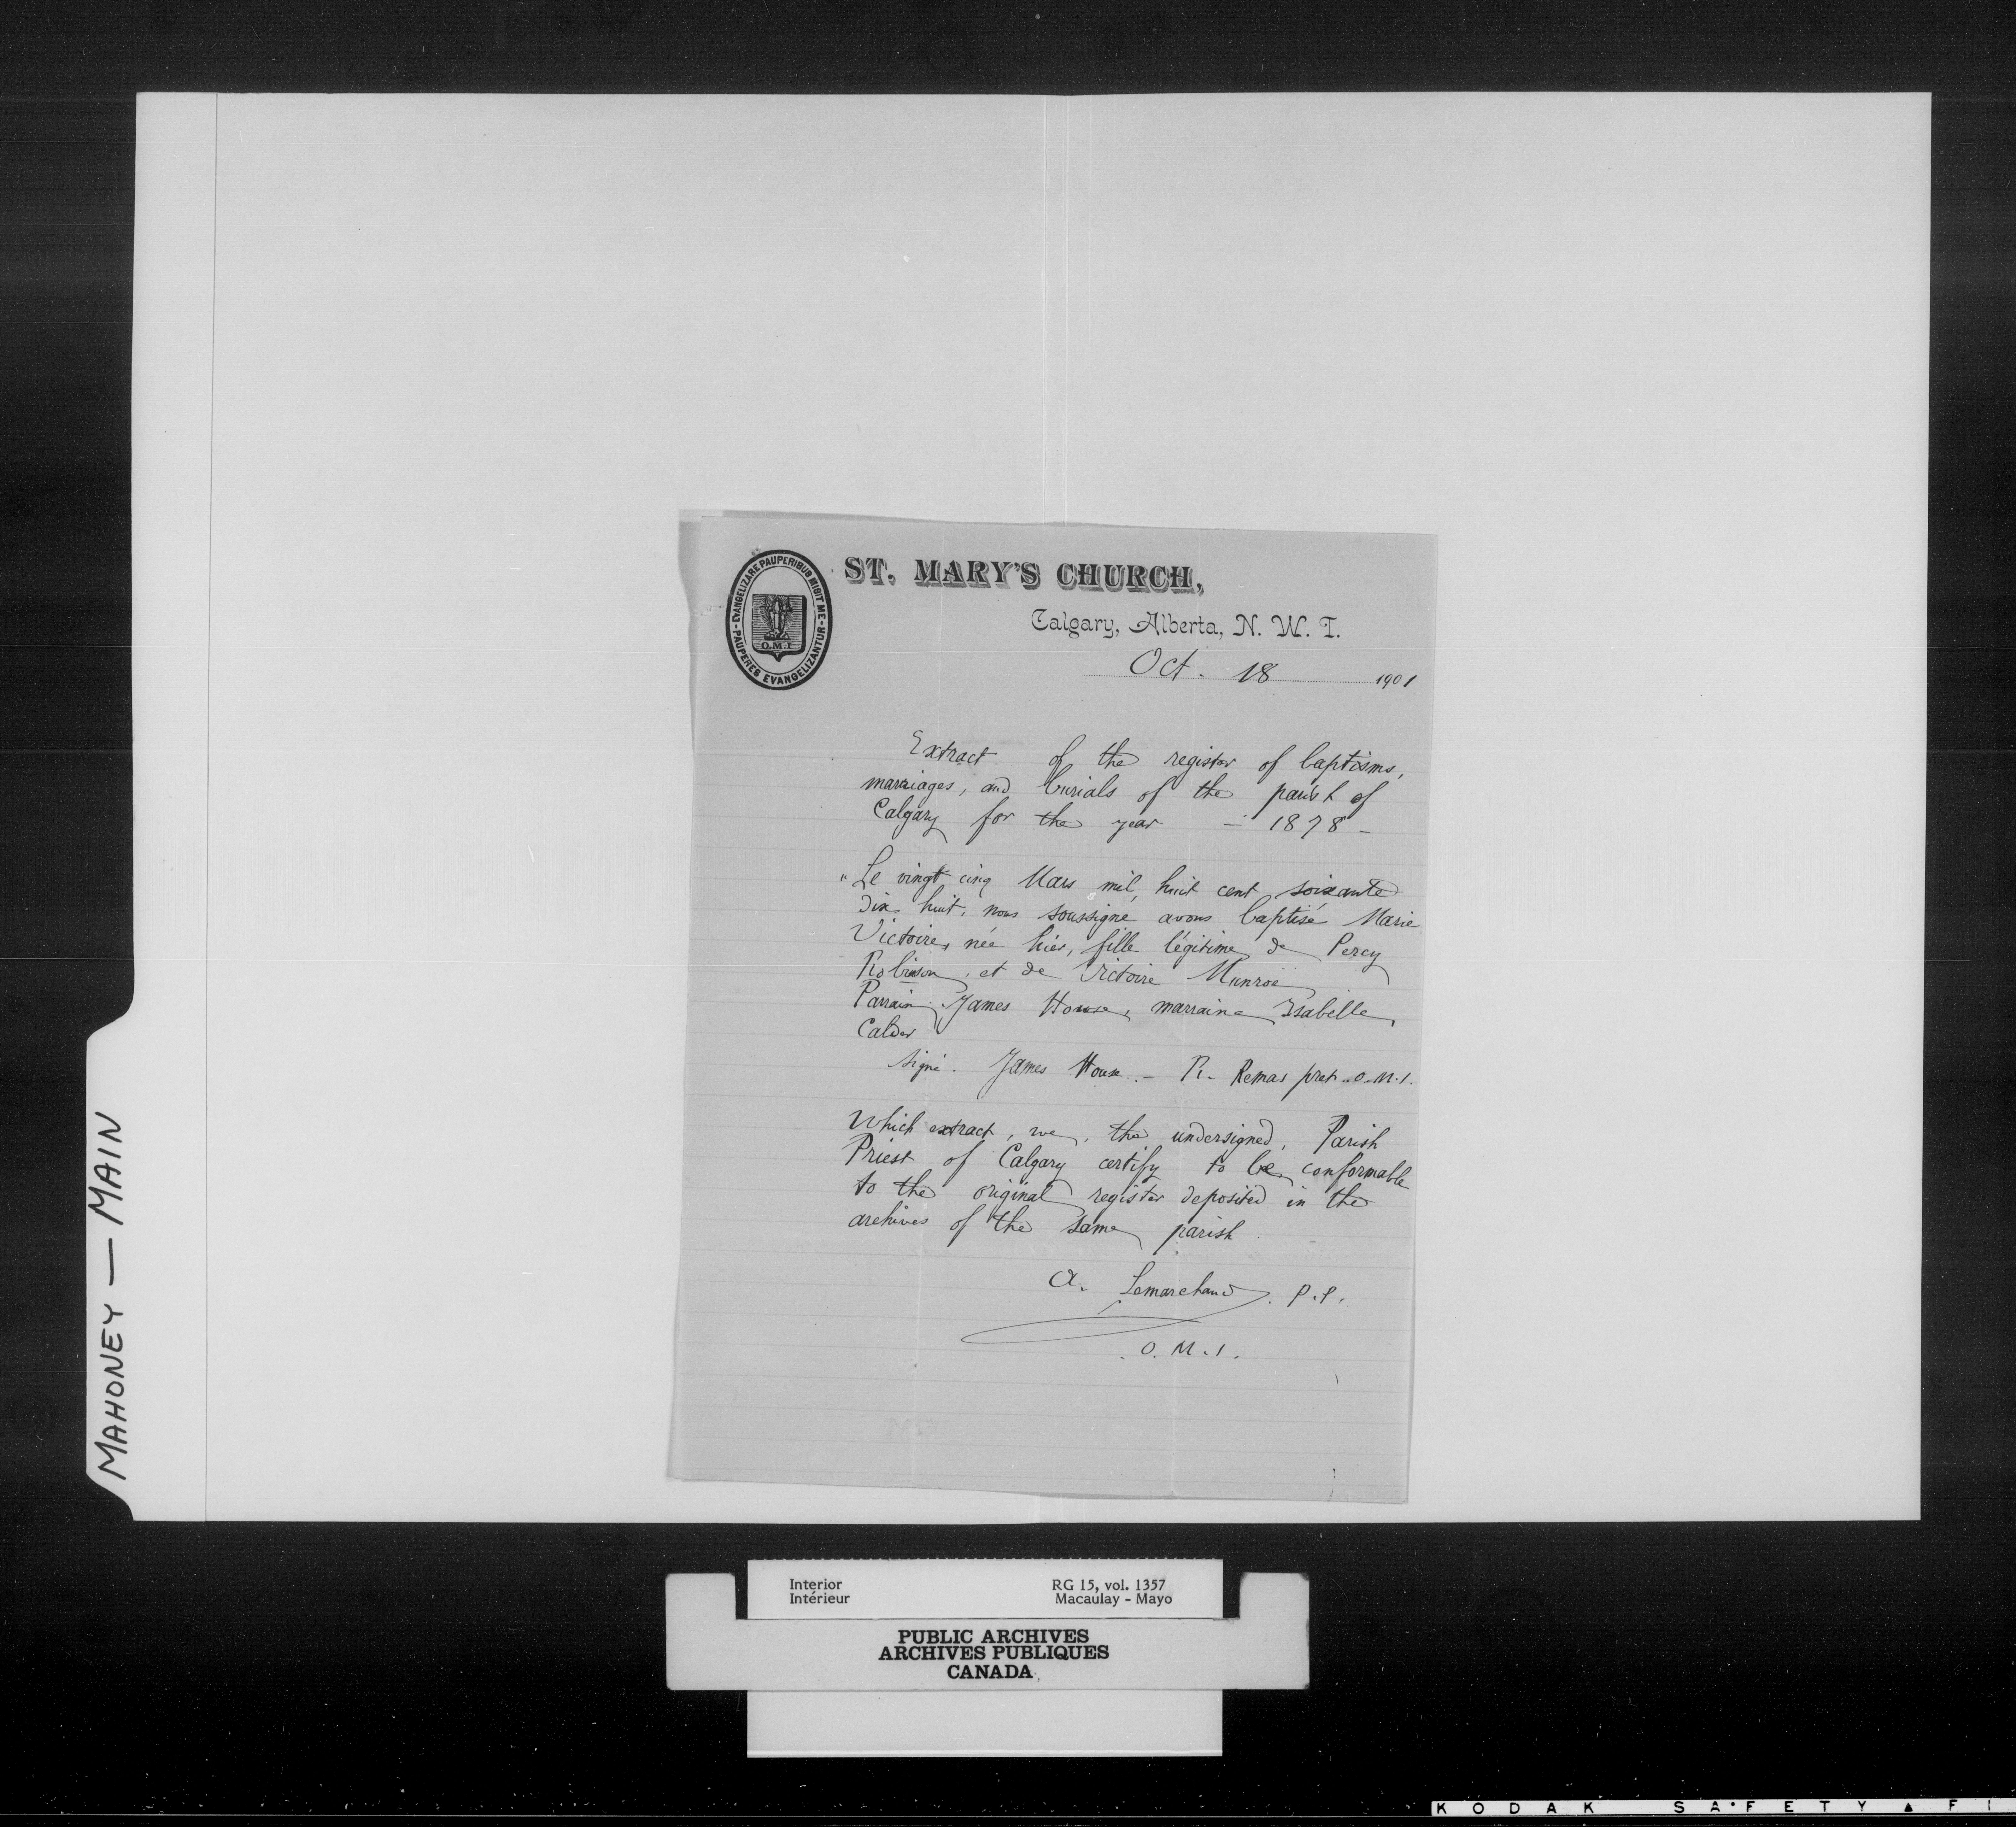 EVANGELIZARE PAUPERIBUS MISIT ME - PAUPERES EVANGELIZANTUR -
O.M.I
ST. MARY'S CHURCH,
Calgary, Alberta, N. W. T.
Oct. 18 1901
Extract of the register of baptisms,
marriages, and burials of the parish of
Calgary for the year - 1878 -
"Le vingt cinq Mars mil, huit cent soixante
dix huit, nous soussigné avons baptisé Marie
Victoire, née hier, fille légitime de Percy
Robinson, et de Victoire Munroe
Parrain James House, marraine Isabelle
Calder
signé. James House. - R. Remas pret. O.M.I.
Which extract, we, the undersigned, Parish
Priest of Calgary certify to be conformable
to the original register deposited in the
archives of the same parish
A. Lemarchand. P.P.
O.M.I.
MAHONEY — MAIN
Interior RG 15, vol. 1357
Intérieur Macaulay - Mayo
PUBLIC ARCHIVES
ARCHIVES PUBLIQUES
CANADA
KODAK SAFETY ▲ FI